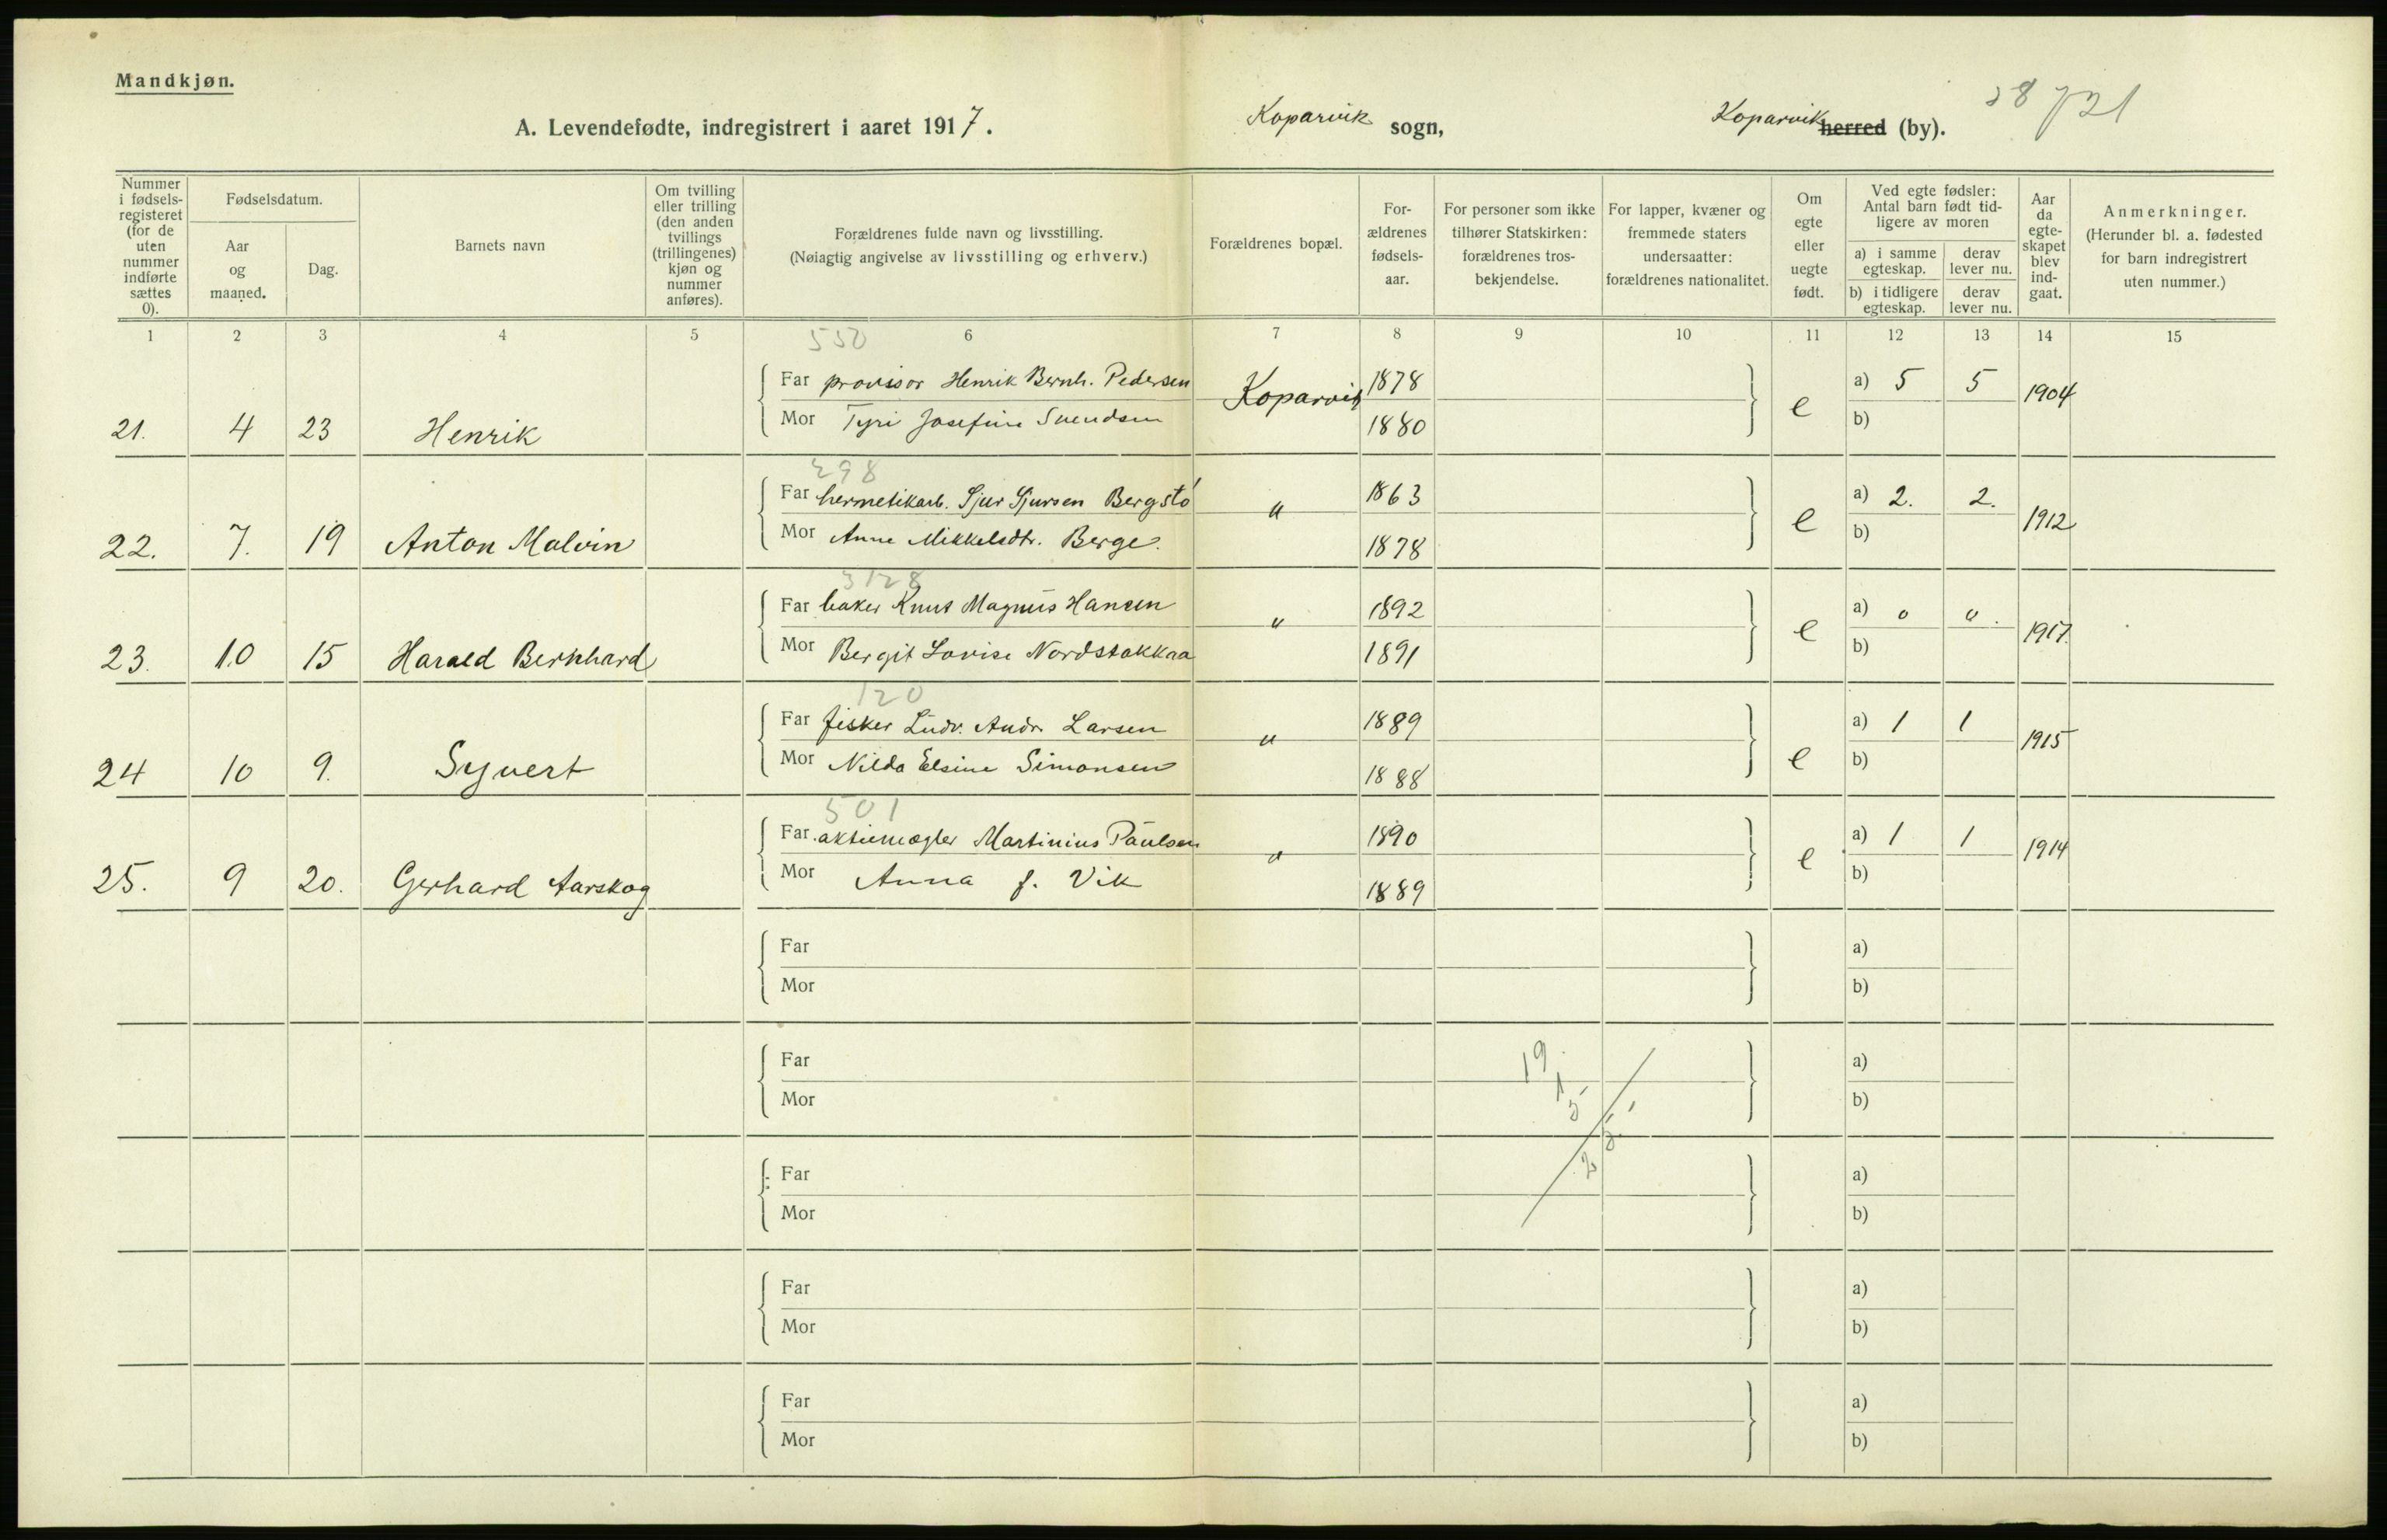 Mandkjøn.
A. Levendefødte, indregistrert i aaret 1917. Koparvik sogn, Koparvik herred (by). 28 721
Nummer i fødselsregisteret (for de uten nummer indførte sættes 0).
Fødselsdatum.
Aar og maaned.
Dag.
Barnets navn
Om tvilling eller trilling (den anden tvillings (trillingenes) kjøn og nummer anføres).
Forældrenes fulde navn og livsstilling.
(Nøiagtig angivelse av livsstilling og erhverv.)
Forældrenes bopæl.
Forældrenes fødselsaar.
For personer som ikke tilhører Statskirken: forældrenes trosbekjendelse.
For lapper, kvæner og fremmede staters undersaatter: forældrenes nationalitet.
Om egte eller uegte født.
Ved egte fødsler: Antal barn født tidligere av moren
a) i samme egteskap. derav lever nu.
b) i tidligere egteskap. derav lever nu.
Aar da egteskapet blev indgaat.
Anmerkninger.
(Herunder bl. a. fødested for barn indregistrert uten nummer.)
1 2 3 4 5 6 7 8 9 10 11 12 13 14 15
550
Far provisor Henrik Bernh. Pedersen Koparvik 1878 a) 5 5 1904
21. 4 23 Henrik Mor Tyri Josefine Svendsen 1880 e b)
298
Far hermetikarb. Sjur Sjursen Bergstø " 1863 a) 2. 2. 1912
22. 7. 19 Anton Malvin Mor Anne Mikkelsdtr. Berge. 1878 e b)
3128
Far baker Knut Magnus Hansen " 1892 a) 0 0. 1917.
23. 10 15 Harald Bernhard Mor Bergit Lovise Nordstokkaa 1891 e b)
120
Far fisker Ludv. Andr. Larsen " 1889 a) 1 1 1915
24 10 9. Syvert Mor Nilda Elsine Simonsen 1888 e b)
501
Far aktiemægler Martinius Paulsen " 1890 a) 1 1 1914
25. 9 20. Gerhard Aarskog Mor Anna f. Vik 1889 e b)
Far a)
Mor b)
Far 19 a)
Mor 1 5 b)
25
Far a)
Mor b)
Far a)
Mor b)
Far a)
Mor b)